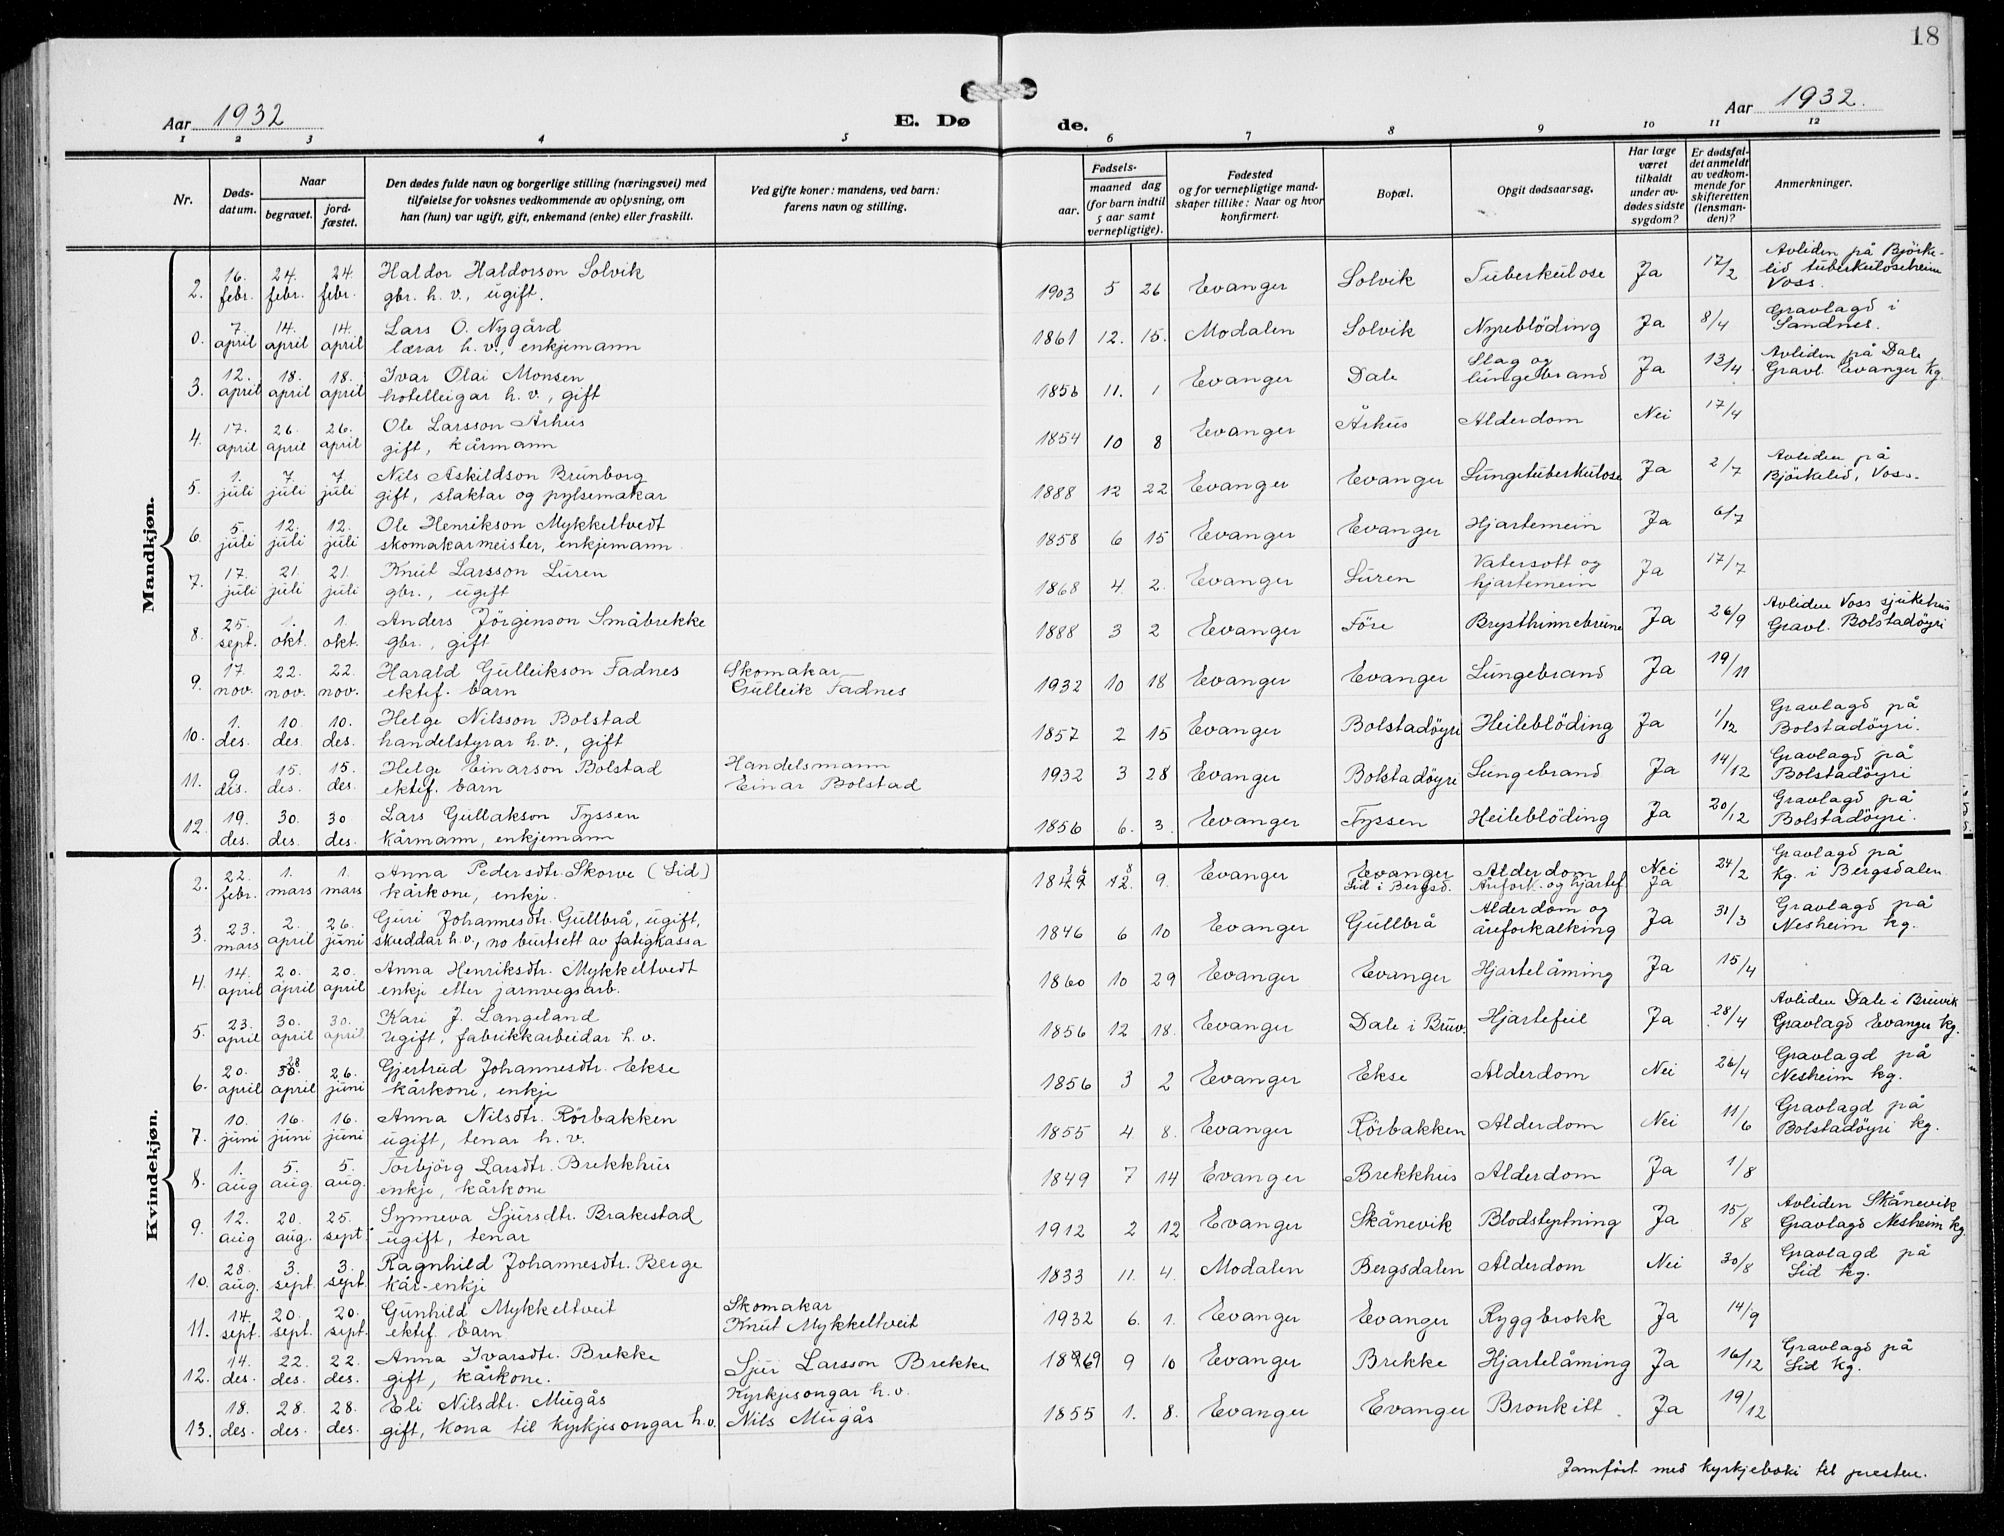 18
Aar 1932
E. Dø de.
Aar 1932.
1 2 3 4 5 6 7 8 9 10 11 12
Nr.
Døds-datum.
Naar
begravet.
jord-fæstet.
Den dødes fulde navn og borgerlige stilling (næringsvei) med
tilføielse for voksnes vedkommende av oplysning, om
han (hun) var ugift, gift, enkemand (enke) eller fraskilt.
Ved gifte koner: mandens, ved barn:
farens navn og stilling.
Fødsels-
aar.
maaned dag
(for barn indtil
5 aar samt
vernepligtige).
Fødested
og for vernepligtige mand-
skaper tillike: Naar og hvor
konfirmert.
Bopæl.
Opgit dødsaarsag.
Har læge
været
tilkaldt
under av-
dødes sidste
sygdom?
Er dødsfal-
det anmeldt
av vedkom-
mende for
skifteretten
(lensman-
den)?
Anmerkninger.
Mandkjøn.
2. 16. febr. 24. febr. 24. febr. Haldor Haldorson Solvik
gbr. h. v., ugift. 1903 5 26 Evanger Solvik Tuberkulose Ja 17/2 Avliden på Björke-
lid tuberkuloseheim
Voss.
0. 7 april 14. april 14. april Lars O. Nygård
lærar h. v., enkjemann 1861 12. 15. Modalen Solvik Nyreblöding Ja 8/4 Gravlagd i
Sandnes.
3. 12. april 18. april 18. april Ivar Olai Monsen
hotelleigar h. v., gift 1856 11. 1 Evanger Dale Slag og
lungebrand Ja 13/4 Avliden på Dale
Gravl. Evanger kg.
4. 17. april 26. april 26. april Ole Larsson Århus
gift, kårmann 1854 10 8 Evanger Århus Alderdom Nei 17/4
5. 1. juli 7. juli 7 juli Nils Askildson Brunborg
gift, slaktar og pylsemakar 1888 12 22 Evanger Evanger Lungetuberkulose Ja 2/7 Avliden på
Björkelid, Voss.
6. 5. juli 12. juli 12. juli Ole Henrikson Mykkeltvedt
skomakarmeister, enkjemann. 1858 6 15 Evanger Evanger Hjartemein Ja 6/7
7. 17. juli 21. juli 21. juli Knut Larsson Luren
gbr., ugift 1868 4. 2. Evanger Luren Vatersott og
hjartemein Ja 17/7
8. 25. sept. 1. okt. 1. okt. Anders Jörgenson Småbrekke
gbr., gift 1888 3 2 Evanger Före Brysthinnebrune Ja 26/9 Avliden Voss sjukehus
Gravl. Bolstadöyri
9. 17. nov. 22. nov. 22. nov. Harald Gulleikson Fadnes
ektef. barn Skomakar
Gulleik Fadnes 1932 10 18 Evanger Evanger Lungebrand Ja 19/11
10. 1. des. 10. des. 10. des. Helge Nilsson Bolstad
handelstyrar h. v., gift 1857 2 15 Evanger Bolstadöyri Heileblöding Ja 1/12 Gravlagd på
Bolstadöyri.
11. 9. des. 15. des. 15. des. Helge Einarson Bolstad
ektef. barn Handelsmann
Einar Bolstad 1932 3 28 Evanger Bolstadöyri Lungebrand Ja 14/12 Gravlagd på
Bolstadöyri
12. 19. des. 30. des. 30 des. Lars Gullakson Tyssen
kårmann, enkjemann 1856 6. 3. Evanger Tyssen Heileblöding Ja 20/12 Gravlagd på
Bolstadöyri.
Kvindekjøn.
2. 22. febr. 1. mars 1. mars Anna Pedersdtr. Skorve (Lid)
kårkone, enkje. 9. Evanger Evanger
Lid i Bergsd. Alderdom
Årefork. og hjartef. Nei
Ja 24/2 Gravlagd på
kg. i Bergsdalen.
3. 23. mars 2. april 26. juni Guri Johannesdtr. Gullbrå, ugift,
skuddar h. v., no burtsett av fatigkassa 1846 6 10 Evanger Gullbrå Alderdom og
åreforkalking Ja 31/3 Gravlagd på
Nesheim kg.
4. 14. april 20. april 20. april Anna Henriksdtr. Mykkeltvedt
enkje etter jarnvegsarb. 1860 10 29 Evanger Evanger Hjartelåming Ja 15/4
5. 23. april 30. april 30. april Kari J. Langeland
ugift, fabrikkarbeidar h. v. 1856 12 18. Evanger Dale i Bruv. Hjartefeil Ja 28/4 Avliden Dale i Bruvik
Gravlagd Evanger kg.
6. 20. april 28 30. april 26. juni Gjertrud Johannesdtr. Ekse
kårkone, enkje 1856 3 2 Evanger Ekse Alderdom Nei 26/4 Gravlagd på
Nesheim kg.
7. 10. juni 16. juni 16. juni Anna Nilsdtr. Rörbakken
ugift, tenar h. v. 1855 4. 8. Evanger Rörbakken Alderdom Nei 11/6 Gravlagd på
Bolstadöyri kg.
8. 1. aug 5. aug. 5. aug. Torbjörg Larsdtr. Brekkhus
enkje, kårkone 1849 7 14 Evanger Brekkhus Alderdom Ja 1/8
9. 12. aug 20. aug. 25. sept. Synneva Sjursdtr. Brakestad
ugift, tenar 1912 2 12 Evanger Skånevik Blodstyptning Ja 15/8 Avliden Skånevik
Gravlagd Nesheim kg.
10. 28. aug. 3. sept. 3. sept. Ragnhild Johannesdtr. Berge
kår-enkje 1833 11. 4. Modalen Bergsdalen Alderdom Nei 30/8 Gravlagd på
Lid kg.
11. 14. sept. 20. sept. 20. sept. Gunhild Mykkeltveit
ektef. barn Skomakar
Knut Mykkeltveit 1932 6. 1. Evanger Evanger Ryggbrokk Ja 14/9
12. 14. des. 22. des. 22. des. Anna Ivarsdtr. Brekke
gift, kårkone. Sjur Larsson Brekke 1869 9 10 Evanger Brekke Hjartelåming Ja 16/12 Gravlagd på
Lid kg.
13. 18. des. 28. des. 28. des. Eli Nilsdtr. Mugås
gift, kona til kyrkjesongar h. v. Kyrkjesongar h. v.
Nils Mugås 1855 1. 8. Evanger Evanger Bronkitt Ja 19/12
Jamført med kyrkjeboki til presten.